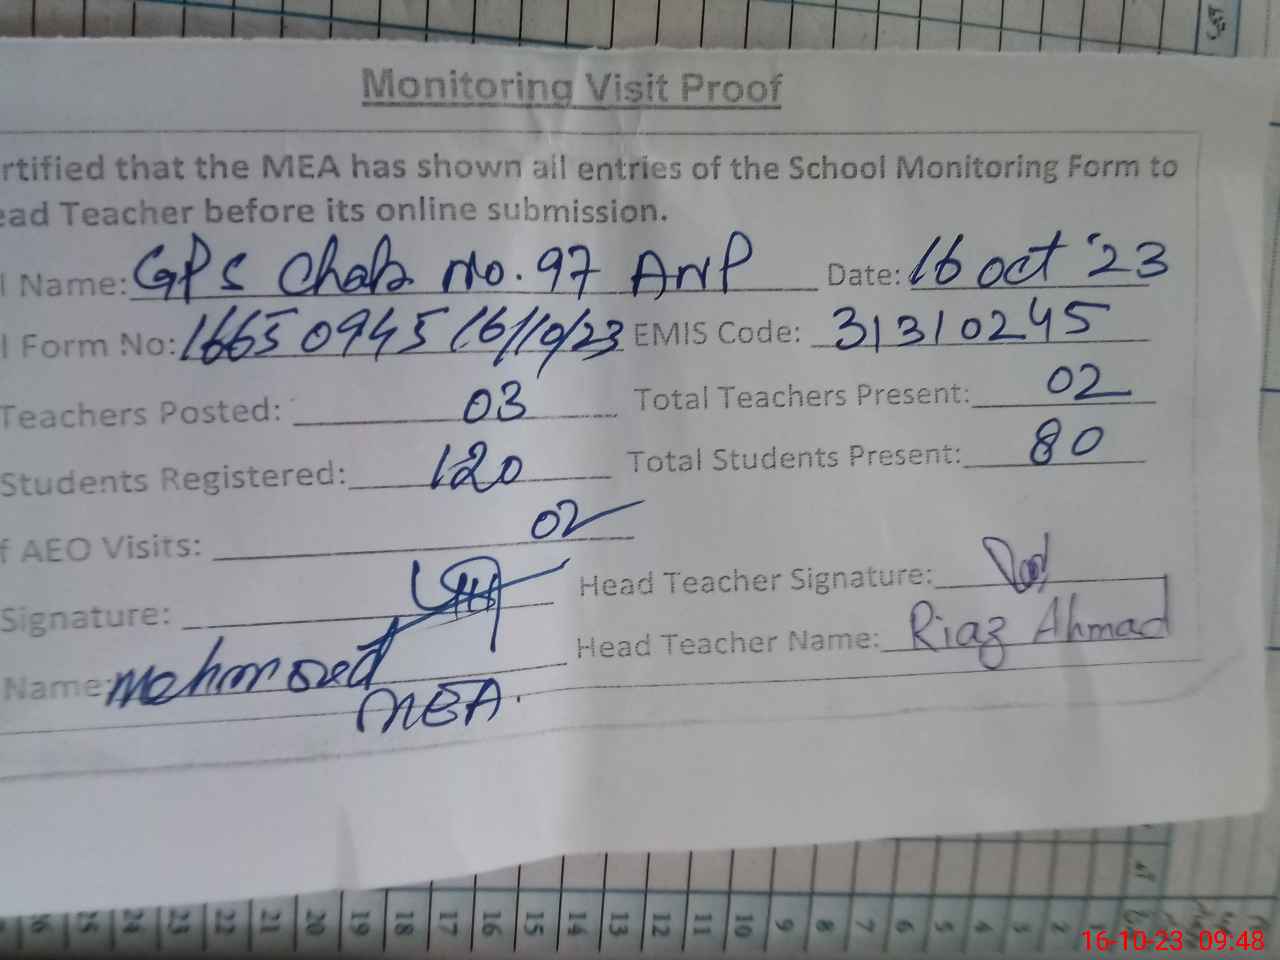 Monitoring Visit Proof
rtified that the MEA has shown all entries of the School Monitoring Form to
ead Teacher before its online submission.
l Name: GPS Chak No. 97 ANP Date: 16 oct '23
l Form No: 16650945 16/10/23 EMIS Code: 31310245
Teachers Posted: 03 Total Teachers Present: 02
Students Registered: 120 Total Students Present: 80
f AEO Visits: 02
Signature: Head Teacher Signature:
Name: Mehmood Head Teacher Name: Riaz Ahmad
MEA.
26 25 24 23 22 21 20 19 18 17 16 15 14 13 12 11 10 9 8 7 6 5 4 3 2 1
16-10-23 09:48